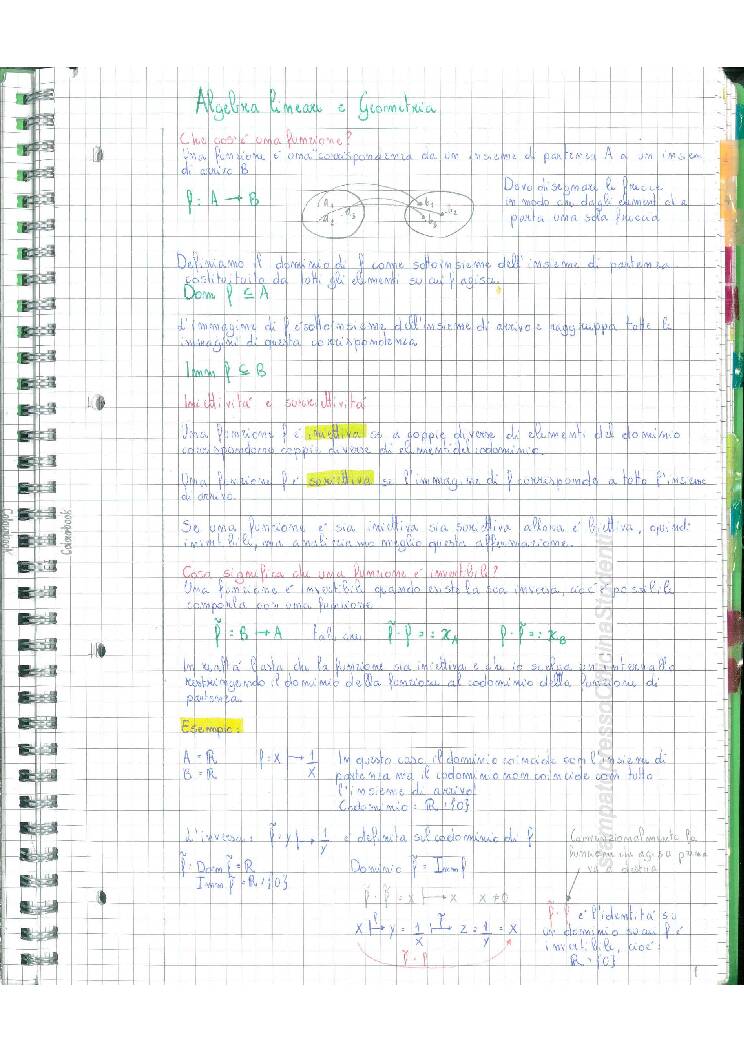 Algebra lineare e Geometria
Che cos'è una funzione?
Una funzione è una corrispondenza da un insieme di partenza A a un insieme
di arrivo B
f: A → B
a₁ a₂ a₃ b₁ b₂ b₃
Devo disegnare le frecce
in modo che dagli elementi di A
parta una sola freccia
Definiamo il dominio di f come sottoinsieme dell'insieme di partenza
costituito da tutti gli elementi su cui f agisce.
Dom f ⊆ A
L'immagine di f è sottoinsieme dell'insieme di arrivo e raggruppa tutte le
immagini di questa corrispondenza
Imm f ⊆ B
Iniettività e suriettività
Una funzione f è iniettiva se a coppie diverse di elementi del dominio
corrispondono coppie diverse di elementi del codominio.
Una funzione f è suriettiva se l'immagine di f corrisponde a tutto l'insieme
di arrivo.
Se una funzione è sia iniettiva sia suriettiva allora è biettiva, quindi
invertibile, ma analizziamo meglio questa affermazione.
Cosa significa che una funzione è invertibile?
Una funzione è invertibile quando esiste la sua inversa, cioè è possibile
comporla con una funzione
f̃ : B → A tale che f̃ · f = : x_A f · f̃ = : x_B
In realtà basta che la funzione sia iniettiva e che io scelga un intervallo
restringendo il dominio della funzione al codominio della funzione di
partenza.
Esempio:
A = ℝ f: x → 1/x
B = ℝ
In questo caso il dominio coincide con l'insieme di
partenza ma il codominio non coincide con tutto
l'insieme di arrivo!
Codominio: ℝ \ {0}
L'inversa: f̃: y ↦ 1/y è definita sul codominio di f
f̃: Dom f̃ = ℝ
Imm f̃ = ℝ \ {0}
Dominio f̃ = Imm f
Convenzionalmente la
funzione che agisce prima
va a destra
f̃ · f = x ↦ x x ≠ 0
x ↦ y = 1/x ↦ z = 1/y = x
f̃ · f
f̃ · f è l'identità su
un dominio su cui f è
invertibile, cioè:
ℝ \ {0}
1
Colourbook
StampatopressoOfficineStudenti